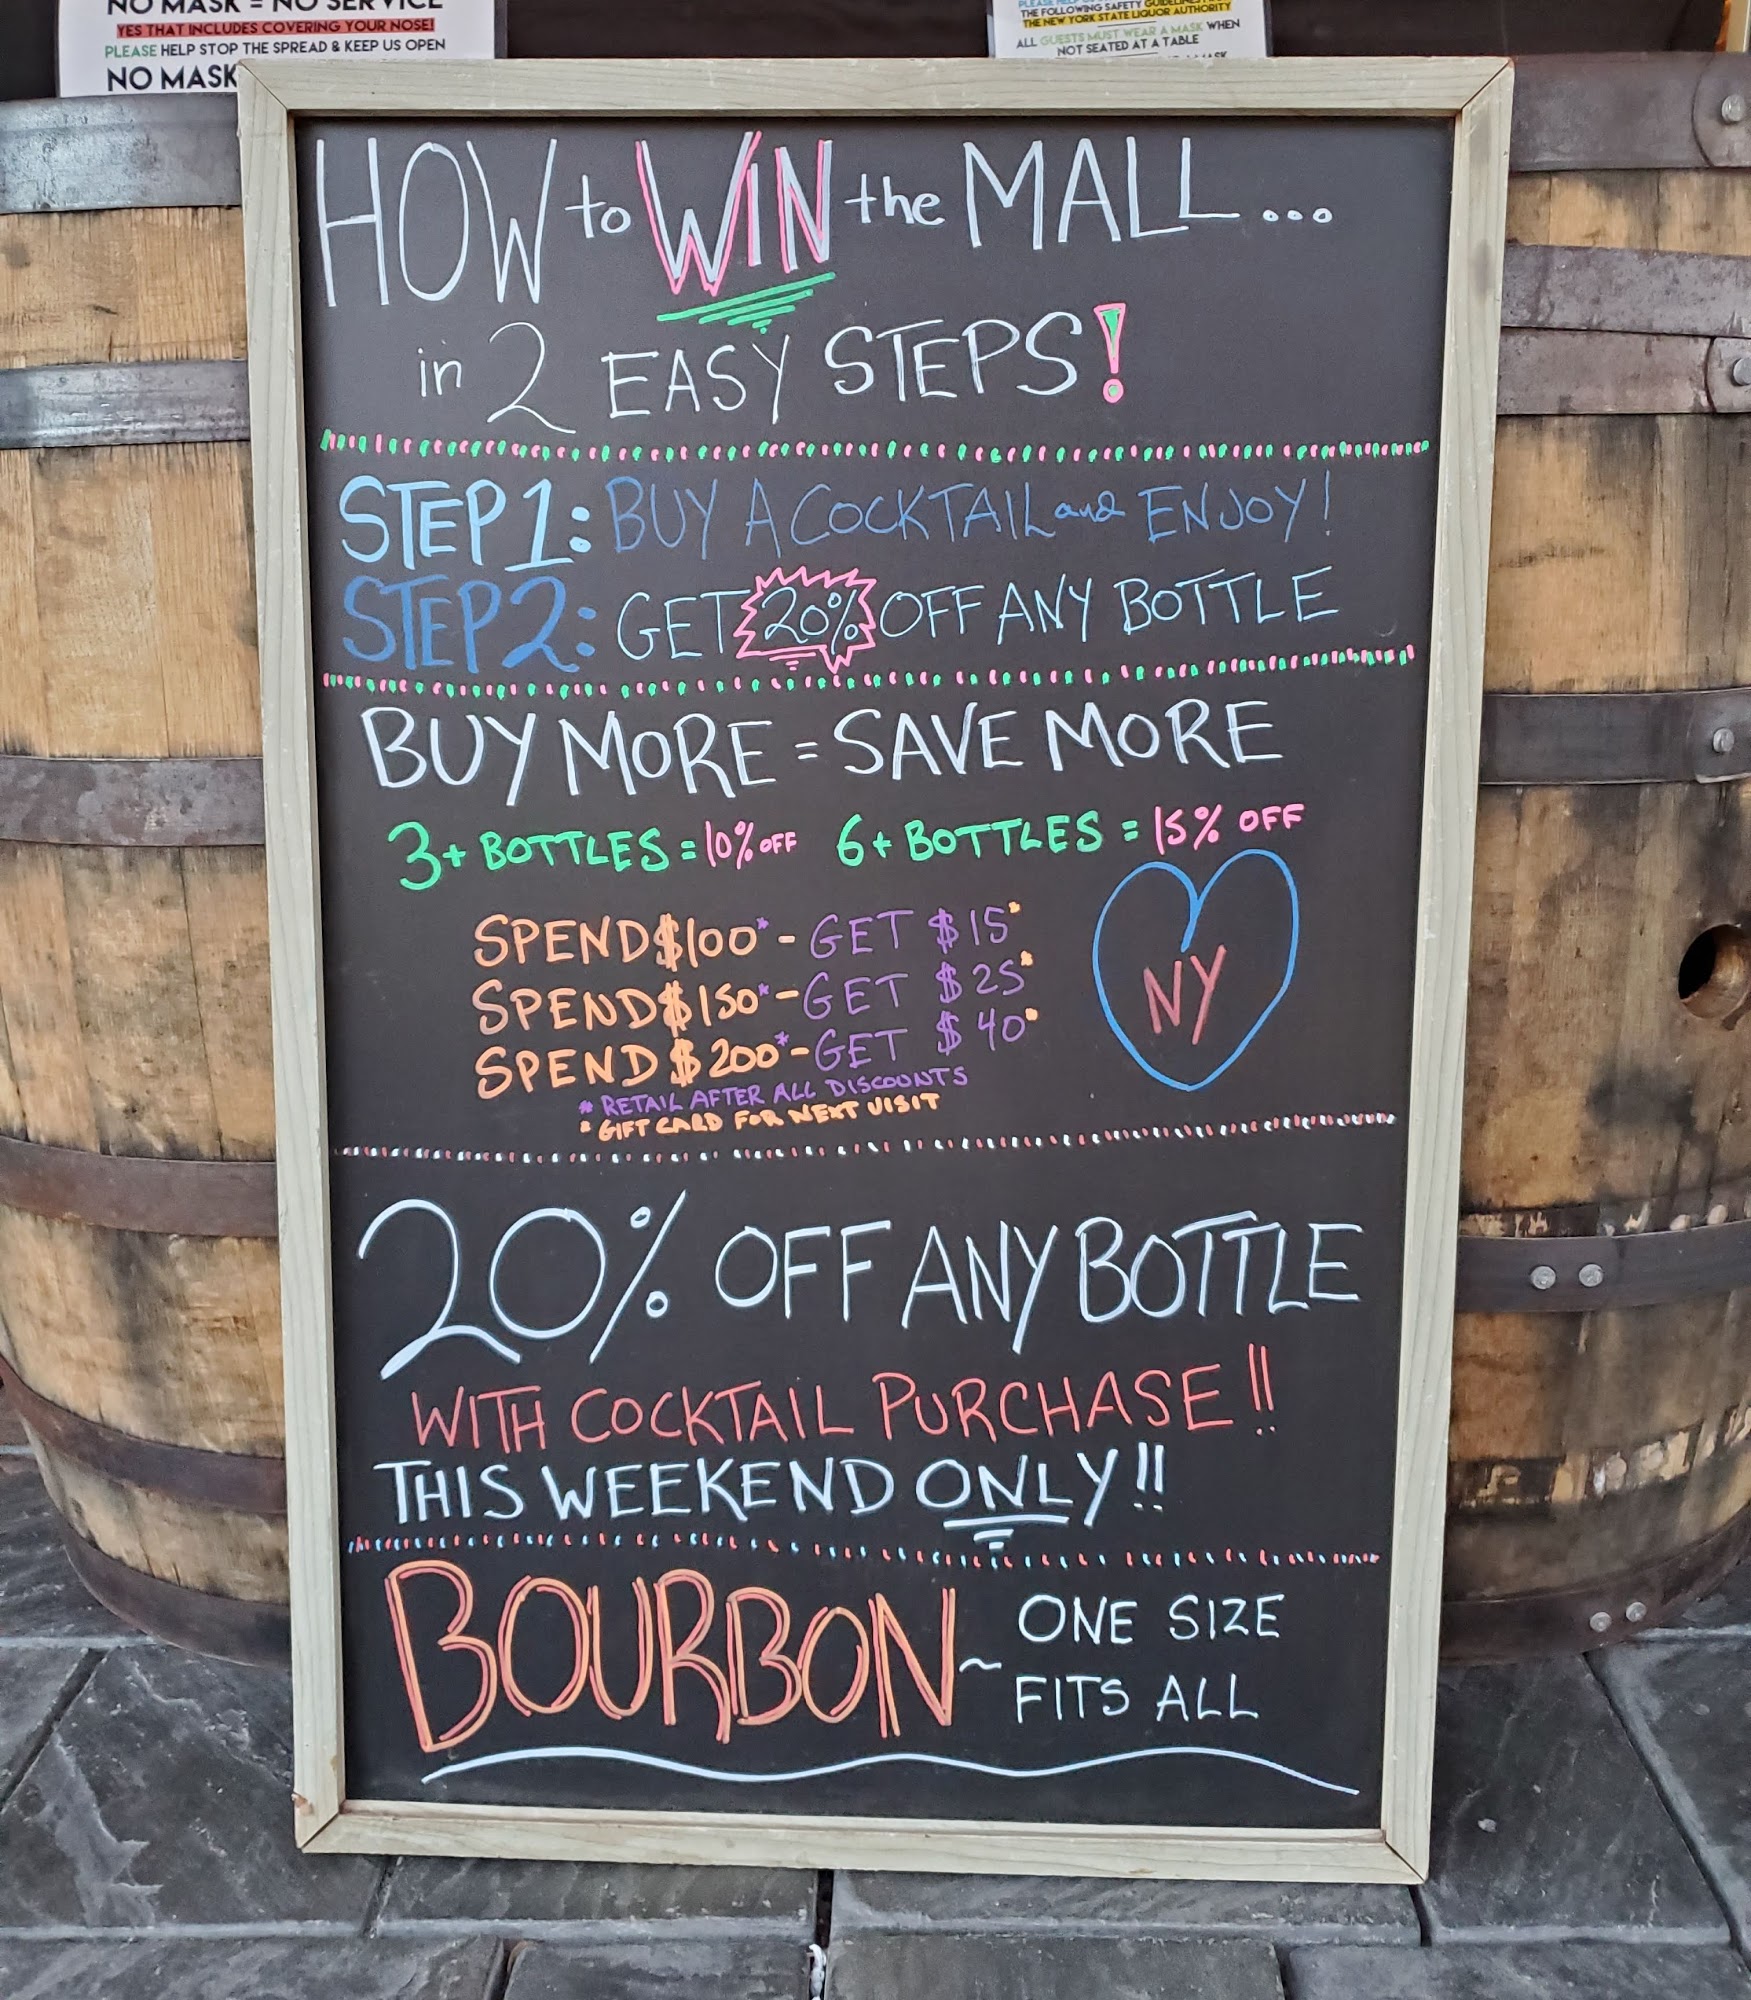 NO MASK = NO SERVICE
YES THAT INCLUDES COVERING YOUR NOSE!
PLEASE HELP STOP THE SPREAD & KEEP US OPEN
NO MASK
THE FOLLOWING SAFETY GUIDELINES
THE NEW YORK STATE LIQUOR AUTHORITY
ALL GUESTS MUST WEAR A MASK WHEN
NOT SEATED AT A TABLE
HOW to WIN the MALL...
in 2 EASY STEPS!
STEP 1: BUY A COCKTAIL and ENJOY!
STEP 2: GET 20% OFF ANY BOTTLE
BUY MORE = SAVE MORE
3+ BOTTLES = 10% OFF 6+ BOTTLES = 15% OFF
SPEND $100* - GET $15*
SPEND $150* - GET $25*
SPEND $200* - GET $40*
* RETAIL AFTER ALL DISCOUNTS
* GIFT CARD FOR NEXT VISIT
NY
20% OFF ANY BOTTLE
WITH COCKTAIL PURCHASE!!
THIS WEEKEND ONLY!!
BOURBON ~ ONE SIZE
FITS ALL